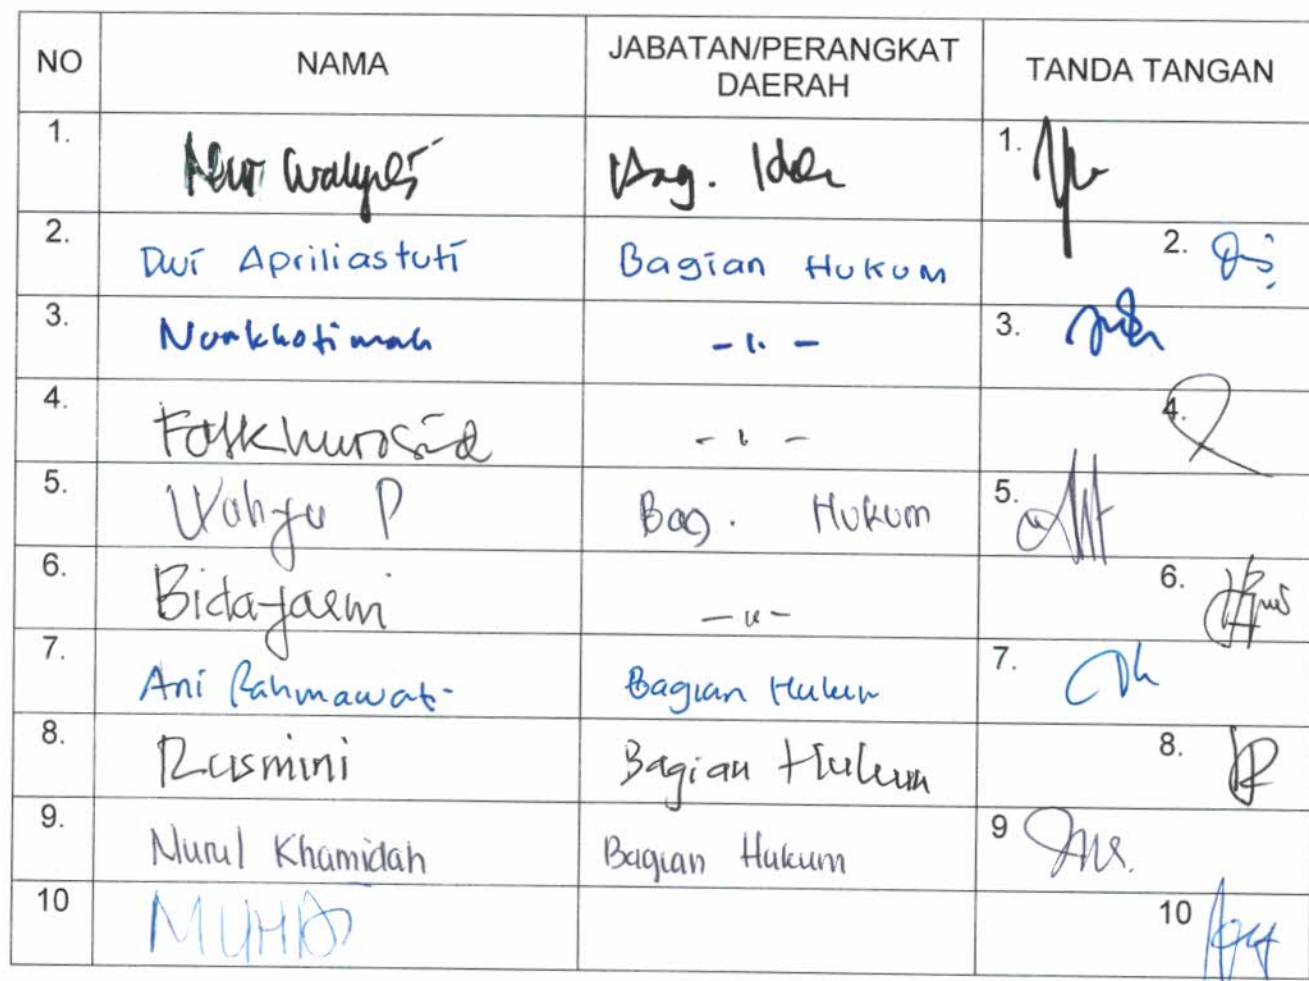 NO NAMA JABATAN/PERANGKAT DAERAH TANDA TANGAN
1. Bag. 1.
2. Dwi Apriliastuti Bagian Hukum 2.
3. Nurkhotimah - ıı - 3.
4. - ıı - 4.
5. Wahyu P Bag. Hukum 5.
6. - ıı - 6.
7. Ani Rahmawati Bagian Hukum 7.
8. Rusmini Bagian Hukum 8.
9. Nurul Khamidah Bagian Hukum 9
10 10